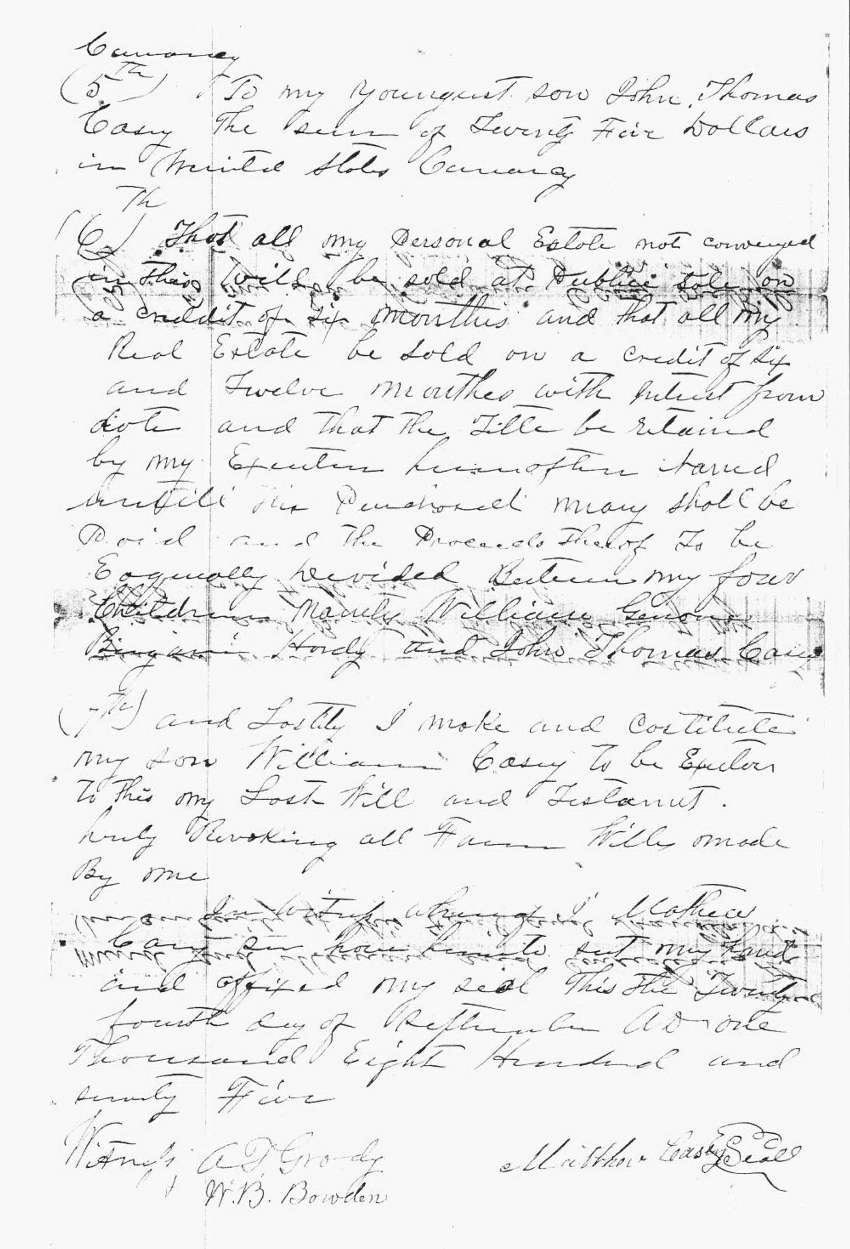 Currancy
(5th) To my youngest son John Thomas
Casey The sum of Twenty Five Dollars
in United States Currancy
Th
(6) That all my Personal Estate not conveyed
in this will be sold at Public Sale on
a credit of Six Monthes and that all my
Real Estate be sold on a credit of six
and Twelve Monthes with Intrest from
date and that the Title be retained
by my Executer hereinafter named
untill the money shall be
Paid and the Proceeds Therof To be
Eaqually devided Between my four
Children Namely William
Hardy and John Thomas Casey
(7th) and Lastly I make and costitute
my son William Casey to be Exector
To this my Last Will and Testament.
hereby Revoking all Former Wills made
By me
In witness whereof I Mathew
Casey sen have hereunto set my hand
and affixed my seal This The Twenty
fourth day of September AD one
Thousand Eight Hundred and
Five
Witness A D Grady Matthew Casey Seal
W. B. Bowden